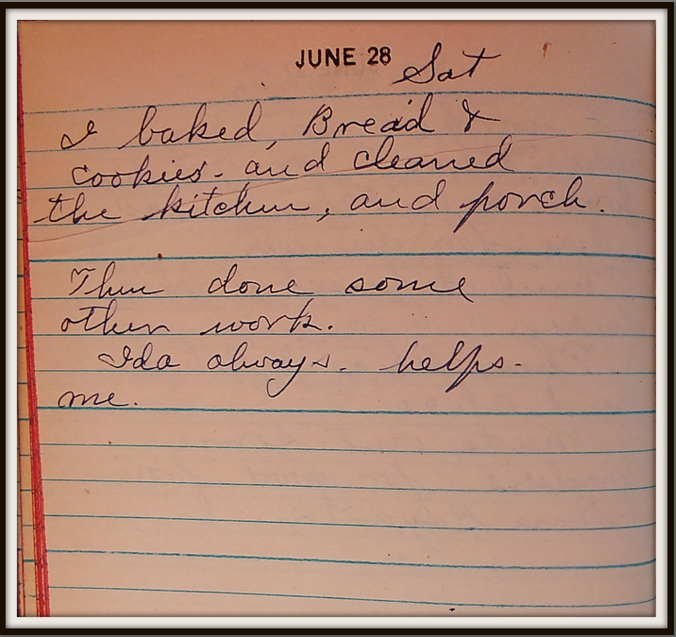 JUNE 28 Sat
I baked, Bread &
cookies. and cleaned
the kitchen, and porch.
Then done some
other work.
Ida always. helps.
me.